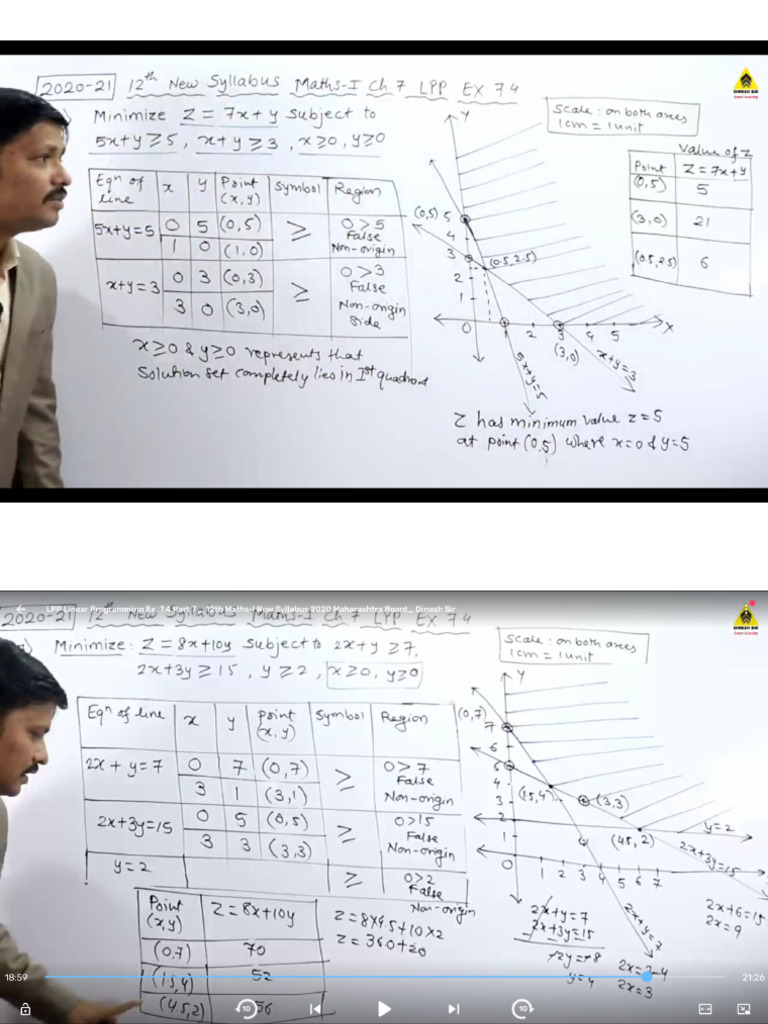 2020-21 12th New Syllabus Maths-I Ch 7 LPP EX 7.4
DINESH SIR
Minimize Z = 7x+y subject to
5x+y≥5, x+y≥3, x≥0, y≥0
Scale: on both axes
1cm = 1unit
Eqn of line x y Point (x,y) Symbol Region
5x+y=5 0 5 (0,5) ≥ 0>5
1 0 (1,0) False
Non-origin
x+y=3 0 3 (0,3) ≥ 0>3
3 0 (3,0) False
Non-origin
Side
x≥0 & y≥0 represents that
Solution set completely lies in Ist quadrant
Y
(0,5) 5
4
3
2
1
0 2 3 4 5 X
(0.5,2.5)
(3,0)
x+y=3
5x+y=5
Value of Z
Point Z=7x+y
(0,5) 5
(3,0) 21
(0.5,2.5) 6
Z has minimum value z=5
at point (0,5) where x=0 & y=5
LPP Linear Programming Ex. 7.4 Part 7 _ 12th Maths-I New Syllabus 2020 Maharashtra Board_ Dinesh Sir
2020-21 12th New Syllabus Maths-I Ch 7 LPP EX 7.4
DINESH SIR
Minimize: Z=8x+10y subject to 2x+y≥7,
2x+3y≥15, y≥2, x≥0, y≥0
Scale: on both axes
1cm = 1unit
Eqn of line x y Point (x,y) Symbol Region
2x+y=7 0 7 (0,7) ≥ 0>7
3 1 (3,1) False
Non-origin
2x+3y=15 0 5 (0,5) ≥ 0>15
3 3 (3,3) False
Non-origin
y=2 ≥ 0>2
False
Non-origin
Y
(0,7) 7
6
6
4
3
2
1
0 1 2 3 4 5 6 7
(1.5,4)
(3,3)
(4.5,2)
y=2
2x+3y=15
2x+y=7
Point (x,y) Z=8x+10y
(0,7) 70
(1.5,4) 52
(4.5,2) 56
Z=8×4.5+10×2
Z=360+20
2x+y=7
2x+3y=15
-2y=-8
y=4
2x=7-4
2x=3
2x+6=15
2x=9
18:59
21:26
10
10